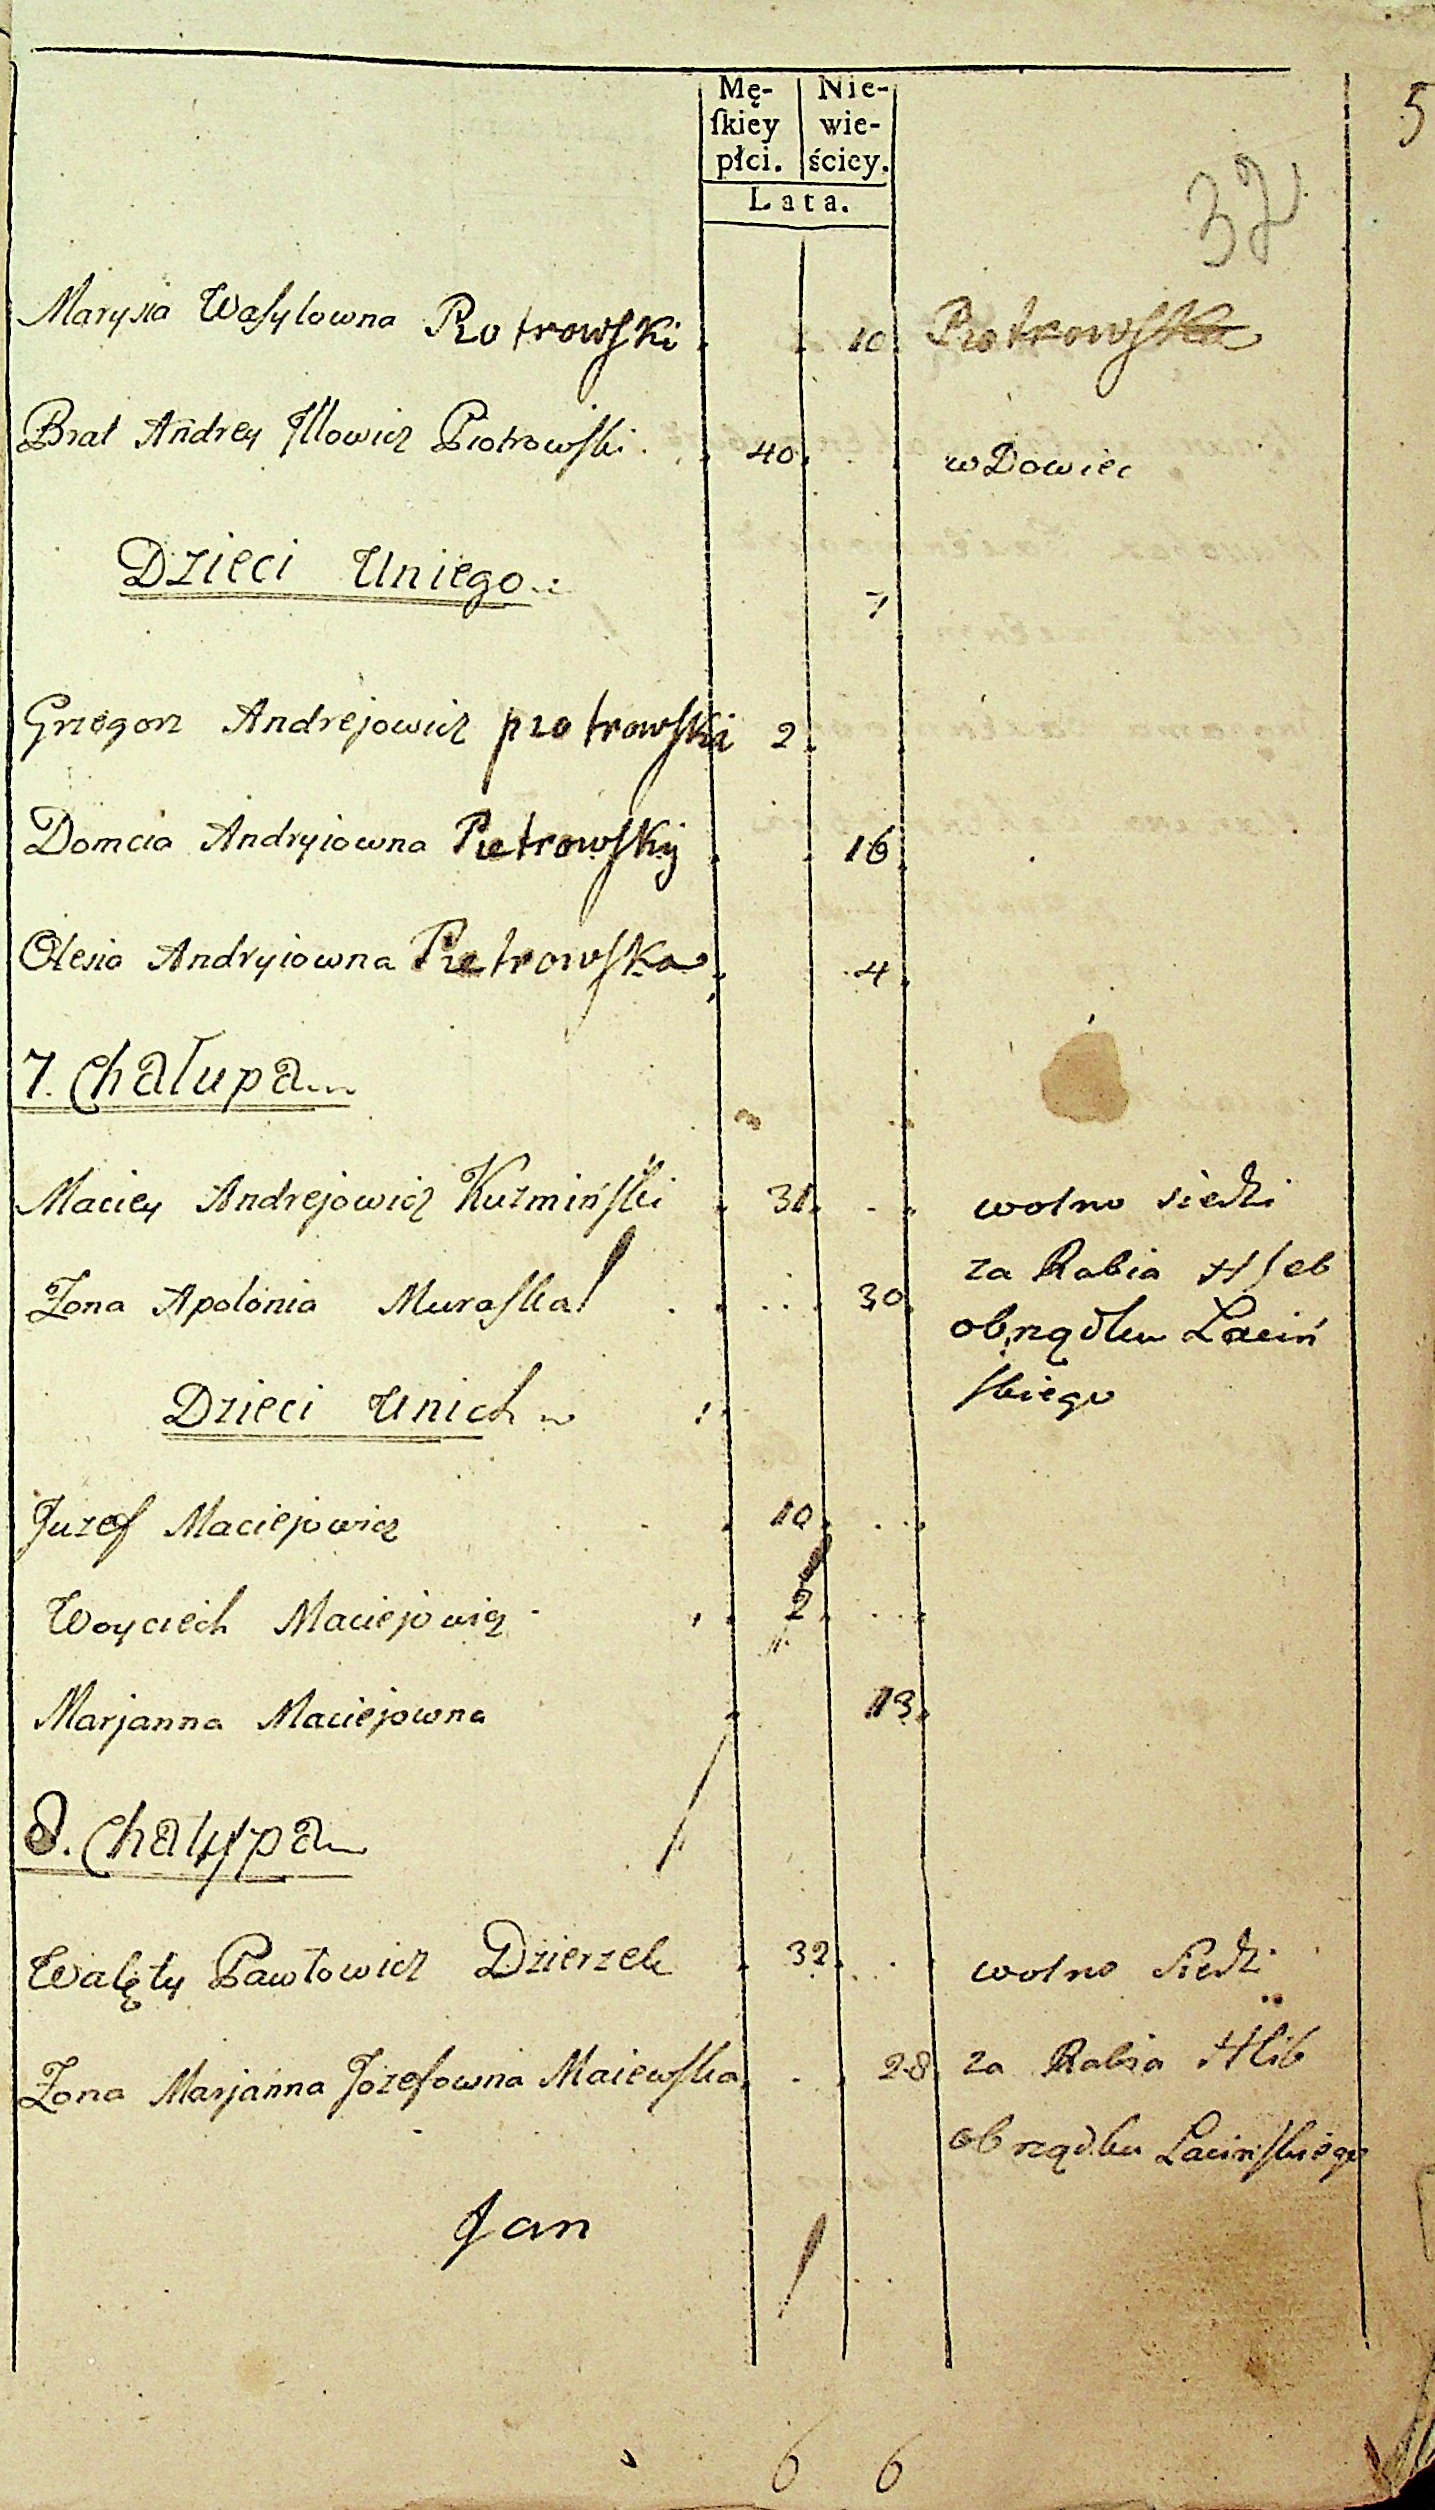 5
Mę- Nie-
ſkiey wie-
płci. ściey.
Lata.
32
Marysia Wasylowna Piotrowski 10 Piotrowska
Brat Andrey Illowicz Piotrowski 40 wDowiec
Dzieci Uniego
7
Grzegorz Andrejowicz piotrowski 2
Domcia Andryiowna Pietrowskij 16
Olesia Andryiowna Pietrowska 4
7. Chałupa
Maciey Andrejowicz Kuzmiński 31 wolno siedzi
Zona Apolonia Muraska 30 za Rabia Hleb
obrządku Laciń
skiego
Dzieci Unich
Juzef Maciejowicz 10
Woyciech Maciejowicz 2
Marjanna Maciejowna 13
8. Chałupa
Walęty Pawłowicz Dzierzek 32 wolno Siedzi
Zona Marjanna Jozefowna Maiewska 28 za Rabia Hlib
obrządku Lacinskiego
Jan
6 6